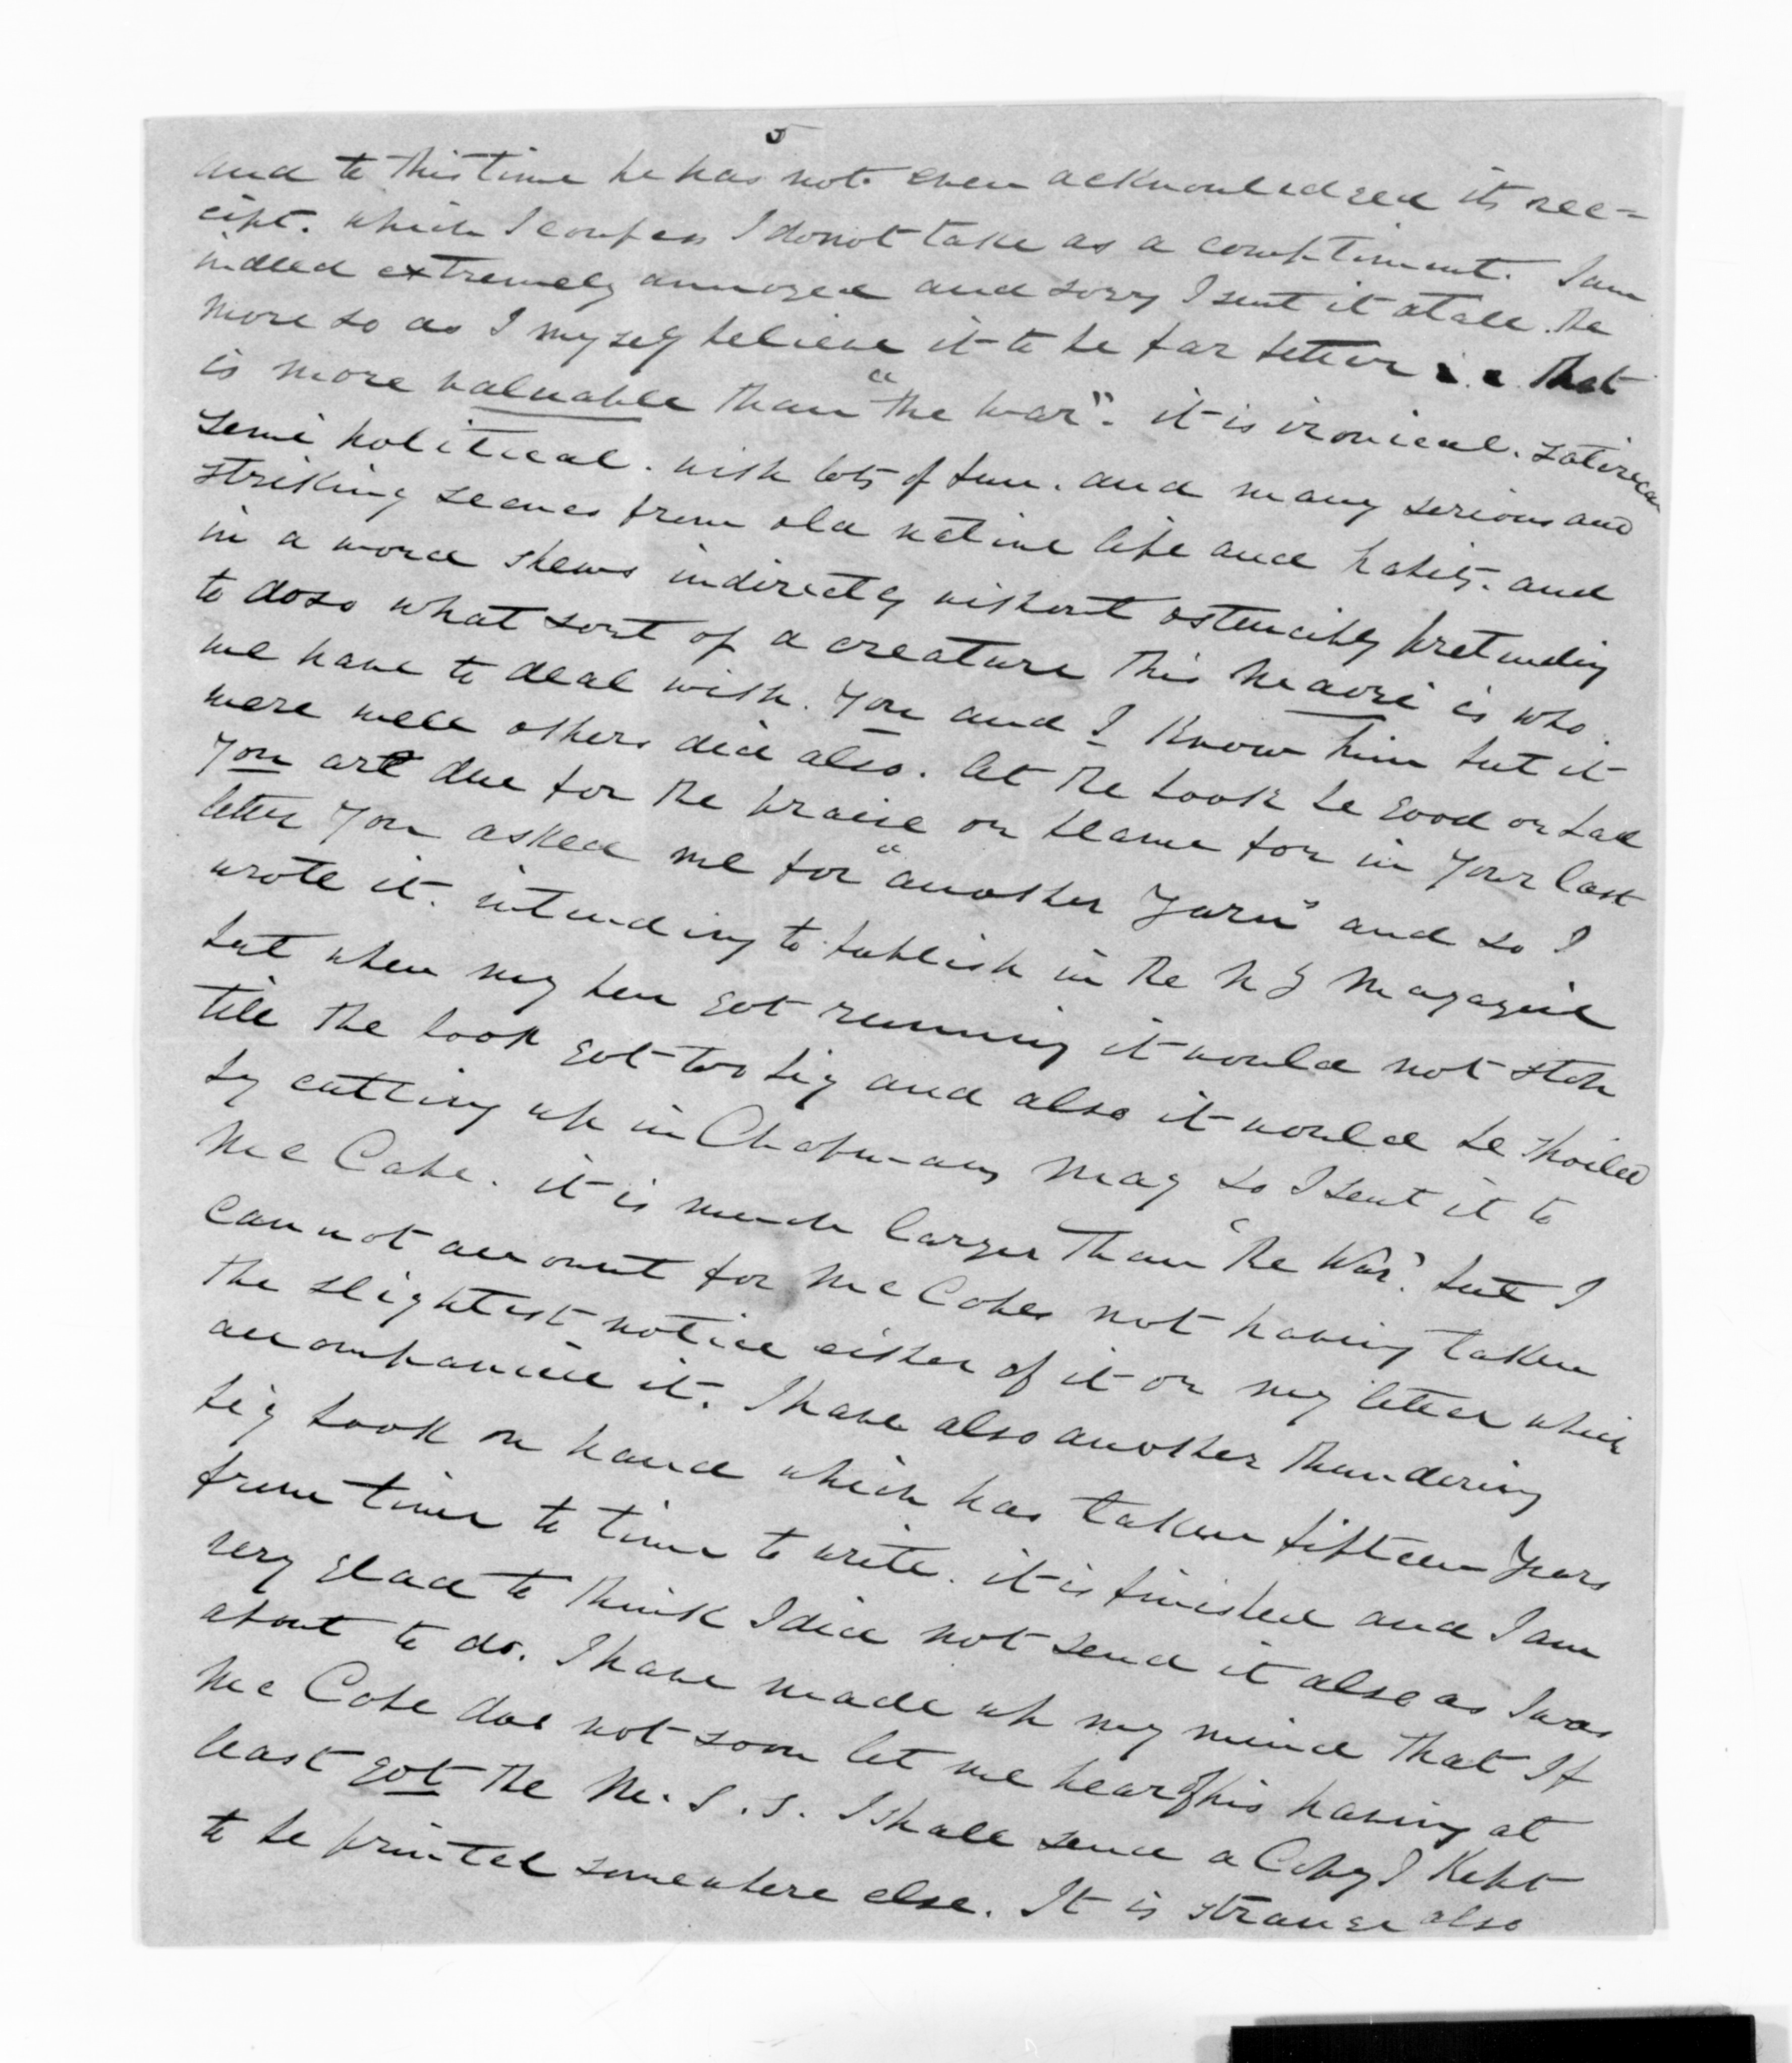 5
and to this time he has not even acknowledged its rec=
eipt. which I confess I do not take as a compliment. I am
indeed extremely annoyed and sorry I sent it at all. the
more so as I myself believe it to be far better i.e. that
is more valuable than "the war". it is ironical. satirical
semi political. with lots of fun. and many serious and
striking scenes from old native life and habits. and
in a word shews indirectly without ostencibly pretending
to do so what sort of a creature this maori is who
we have to deal with. You and I know him but it
were well others did also. let the book be good or bad
you are due for the praise or blame for in your last
letter you asked me for "another yarn" and so I
wrote it. intending to publish in the N Z Magazine
but when my pen got running it would not stop
till the book got too big and also it would be spoiled
by cutting up in Chapmans Mag so I sent it to
Mc Cabe. it is much larger than 'the War'. but I
can not account for Mc Cabes not having taken
the slightest notice either of it or my letter which
accompanied it. I have also another thundering
big book on hand which has taken fifteen years
from time to time to write. it is finished and I am
very glad to think I did not send it also as I was
about to do. I have made up my mind that If
Mc Cabe doe not soon let me hear of his having at
least got the M.S.S. I shall send a Copy I kept
to be printed somewhere else. It is strange also